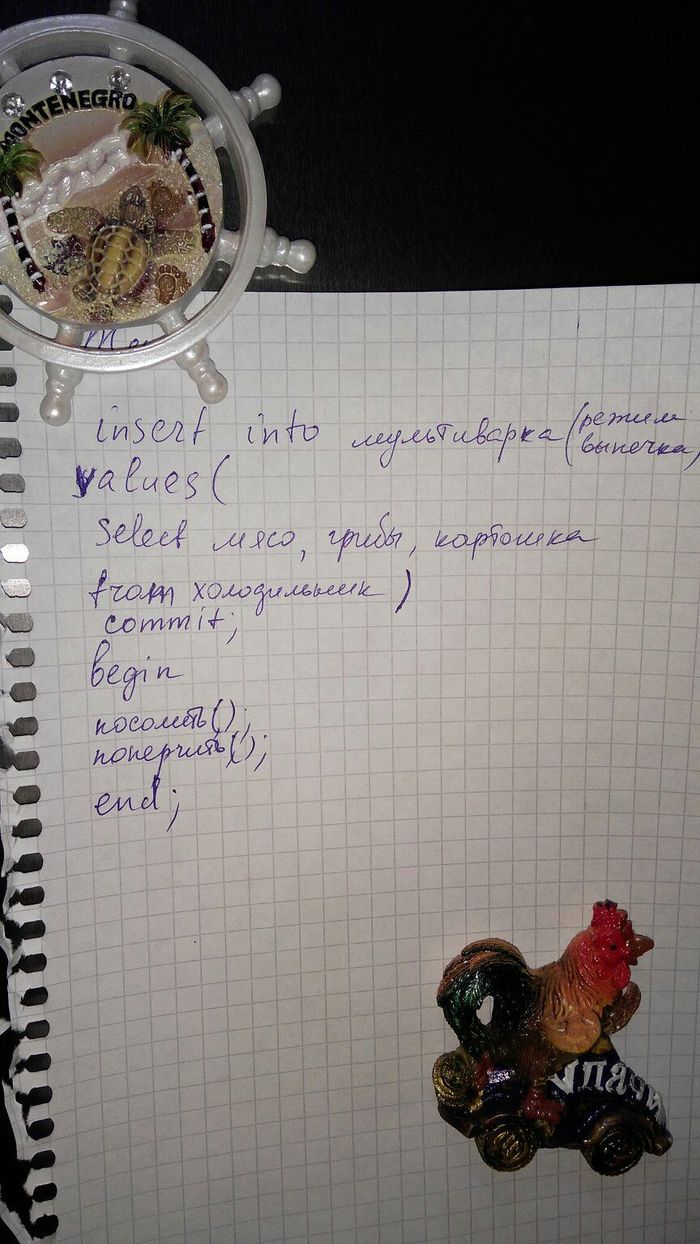 MONTENEGRO
insert into мультиварка (режим выпечка,
values (
Select мясо, грибы, картошка
from холодильник)
commit;
begin
посолить();
поперчить();
end;